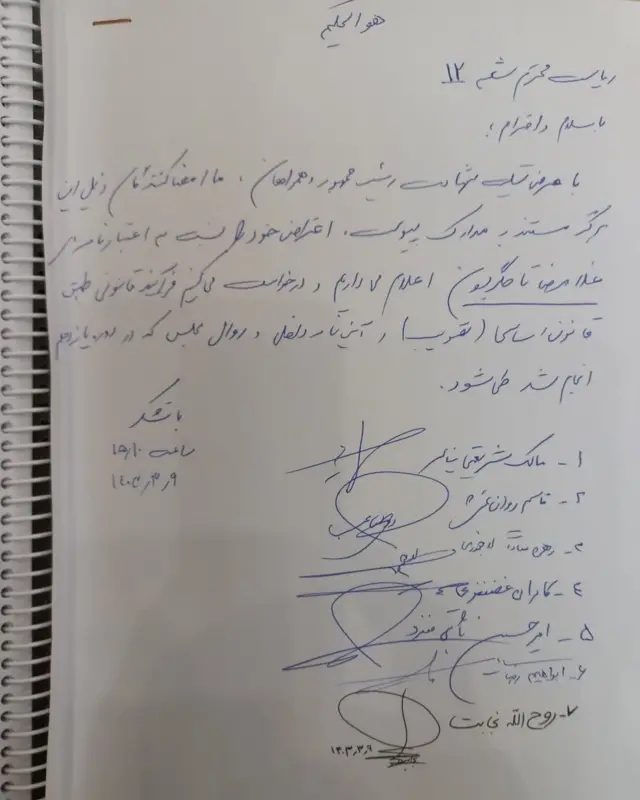 هو الحکیم
ریاست محترم شعبه ۱۲
با سلام و احترام؛
با عرض تسلیت شهادت رئیس جمهور و همراهان، ما امضا کنندگان ذیل این
برگه مستند به مدارک پیوست، اعتراض خود را نسبت به اعتبارنامه‌ی
غلامرضا تاجگردون اعلام می داریم و درخواست می‌کنیم فرآیند قانونی طبق
قانون اساسی (تصویب) و آئین‌نامه داخلی و روال مجلس که در دوره یازدهم
انجام شد طی شود.
با تشکر
ساعت ۱۵:۱۰
۱۴۰۳٫۳٫۹
۱- مالک شریعتی نیاسر
۲- قاسم روانبخش
۳- سادات لاجوردی
۴- کامران غضنفری
۵- امیرحسین ثابتی منفرد
۶- ابراهیم رضائی
۷- روح الله نجابت
۱۴۰۳٫۳٫۹